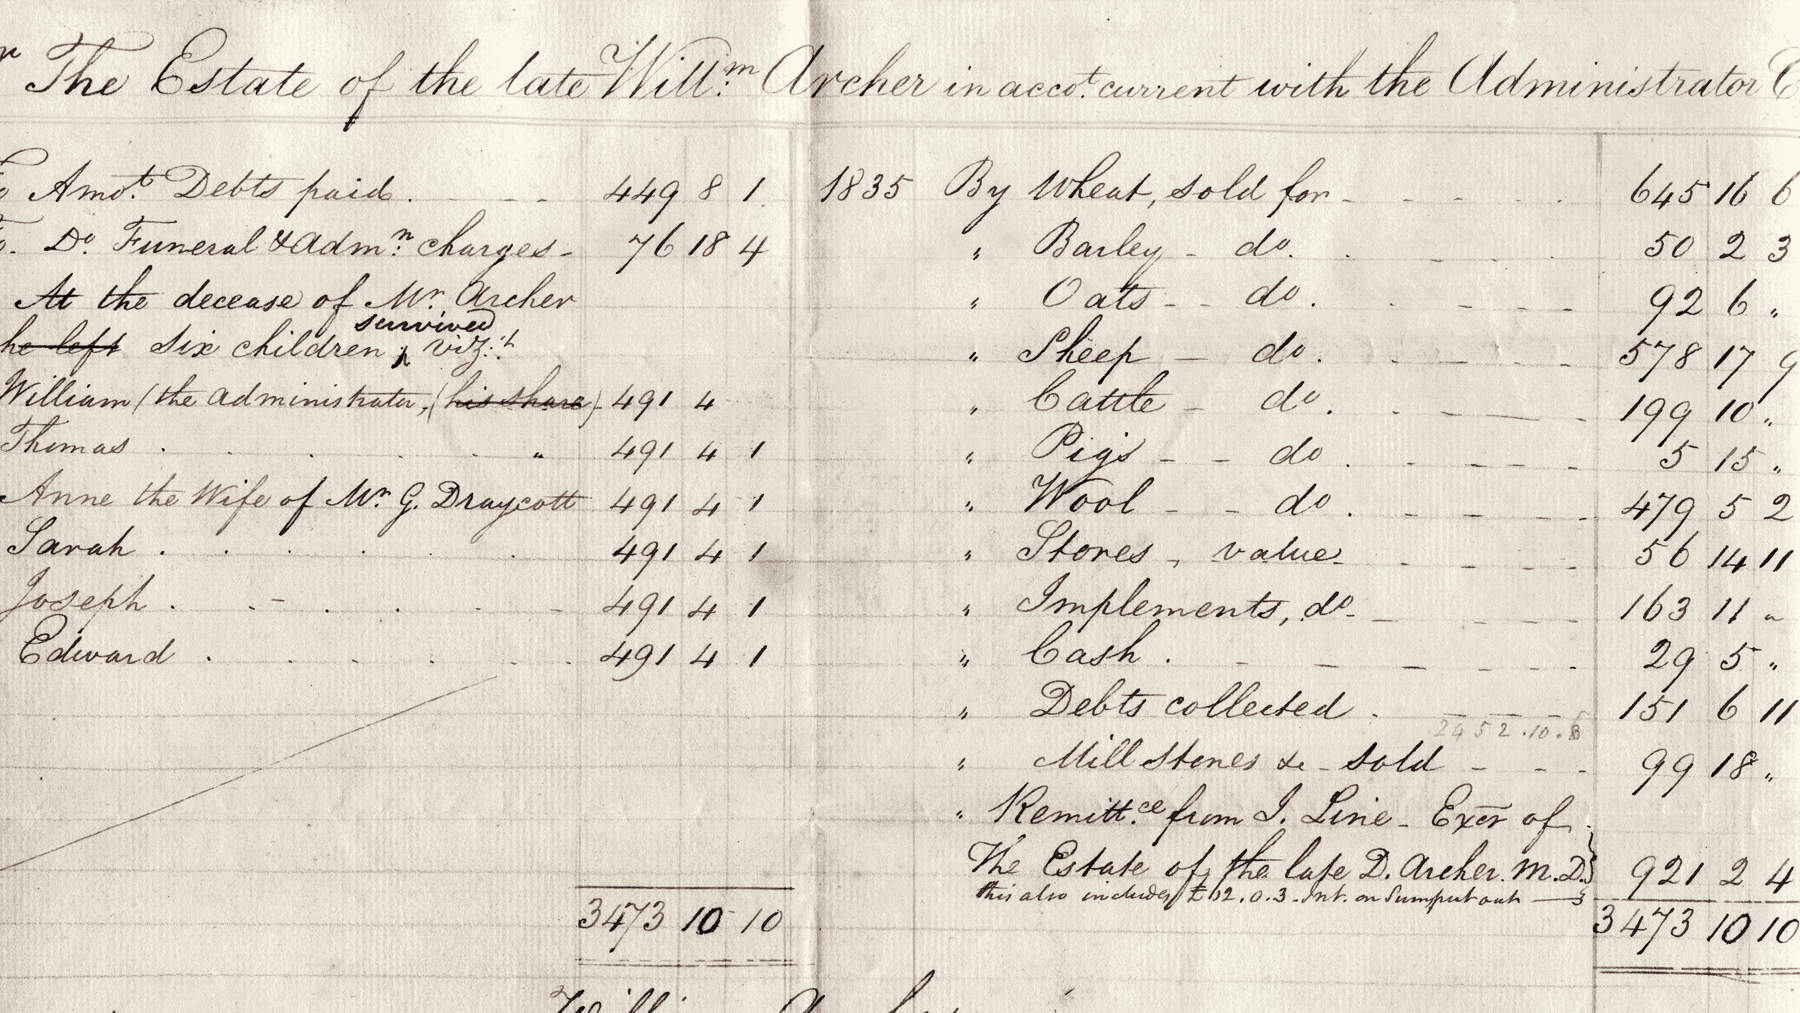 The Estate of the late Willm. Archer in accot. current with the Administrator
To Amot. Debts paid . 449 8 1
To. Do. Funeral & Admn. charges 76 18 4
At the decease of Mr. Archer
he left six children, survived vizt.
William (the administrator, (his share) 491 4
Thomas . . . . . " 491 4 1
Anne the Wife of Mr. G. Draycott 491 4 1
Sarah . . . . . 491 4 1
Joseph . . . . . 491 4 1
Edward . . . . . 491 4 1
3473 10 10
1835 By Wheat, sold for 645 16 6
" Barley - do. 50 2 3
" Oats - do. 92 6 "
" Sheep - do. 578 17 9
" Cattle - do. 199 10 "
" Pigs - do. 5 15 "
" Wool - do. 479 5 2
" Stores, value 56 14 11
" Implements, do. 163 11 "
" Cash . 29 5 "
" Debts collected . 151 6 11
2452.10.6
" Mill stones &c - sold 99 18 "
" Remittce. from J. Line - Exor of
The Estate of the late D. Archer. M.D. 921 2 4
this also includes £12.0.3. Int. on Sum put out
3473 10 10